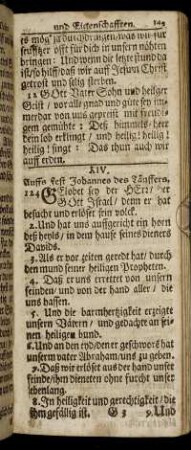 und Eigenschafften.
es mög' ja durchdringen/was wir für
seufftzer offt für dich in unsern nöhten
bringen: Und wenn die letzte stund da
ist/so hilff/daß wir auff Jesum Christ
getrost und selig sterben.
GOtt Vater Sohn und heiliger
Geist / vor alle gnad und güte sey im-
merdar von uns gepreist mit freudi-
gem gemühte: Deß himmels-heer
dein lob erklingt / und heilig: heilig:
heilig: singt: Das thun auch wir
auff erden.
XIV.
Auffs fest Johannes des Täuffers,
124 GElobet sey der HErr/ der
GOtt Israel/ denn er hat
besucht und erlöset sein volck.
2. Und hat uns auffgericht ein horn
deß heyls/ in dem hause seines dieners
Davids.
3. Als er vor zeiten geredt hat/ durch
den mund seiner heiligen Propheten.
4. Daß er uns errettet von unsern
feinden/ und von der hand aller/ die
uns hassen.
5. Und die barmhertzigkeit erzeigte
unsern Vätern/ und gedächte an sei-
nen heiligen bund.
6. Und an den eyd/den er geschworn hat
unserm vater Abraham/uns zu geben.
7. Daß wir erlöset aus der hand unser
feinde/ ihm dieneten ohne furcht unser
lebenlang.
8. In heiligkeit und gerechtigkeit/ die
ihm gefällig ist. G 3 9. Und